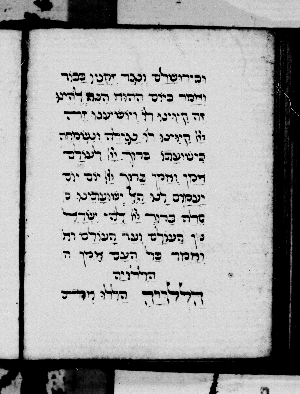 ובירושלם ונגד זקניו כבוד
ואמר ביום ההוא הנה
זה קוינו לו ויושיענו זה
יי קוינו לו נגילה ונשמחה
בישועתו ברוך יי לעולם
אמן ואמן ברוך יי יום יום
יעמוס לנו האל ישועתינו ס
סלה ברוך יי אלהי ישראל
מן העולם ועד העולם וא
ואמר כל העם אמן ה
הללויה
הללויה הללו